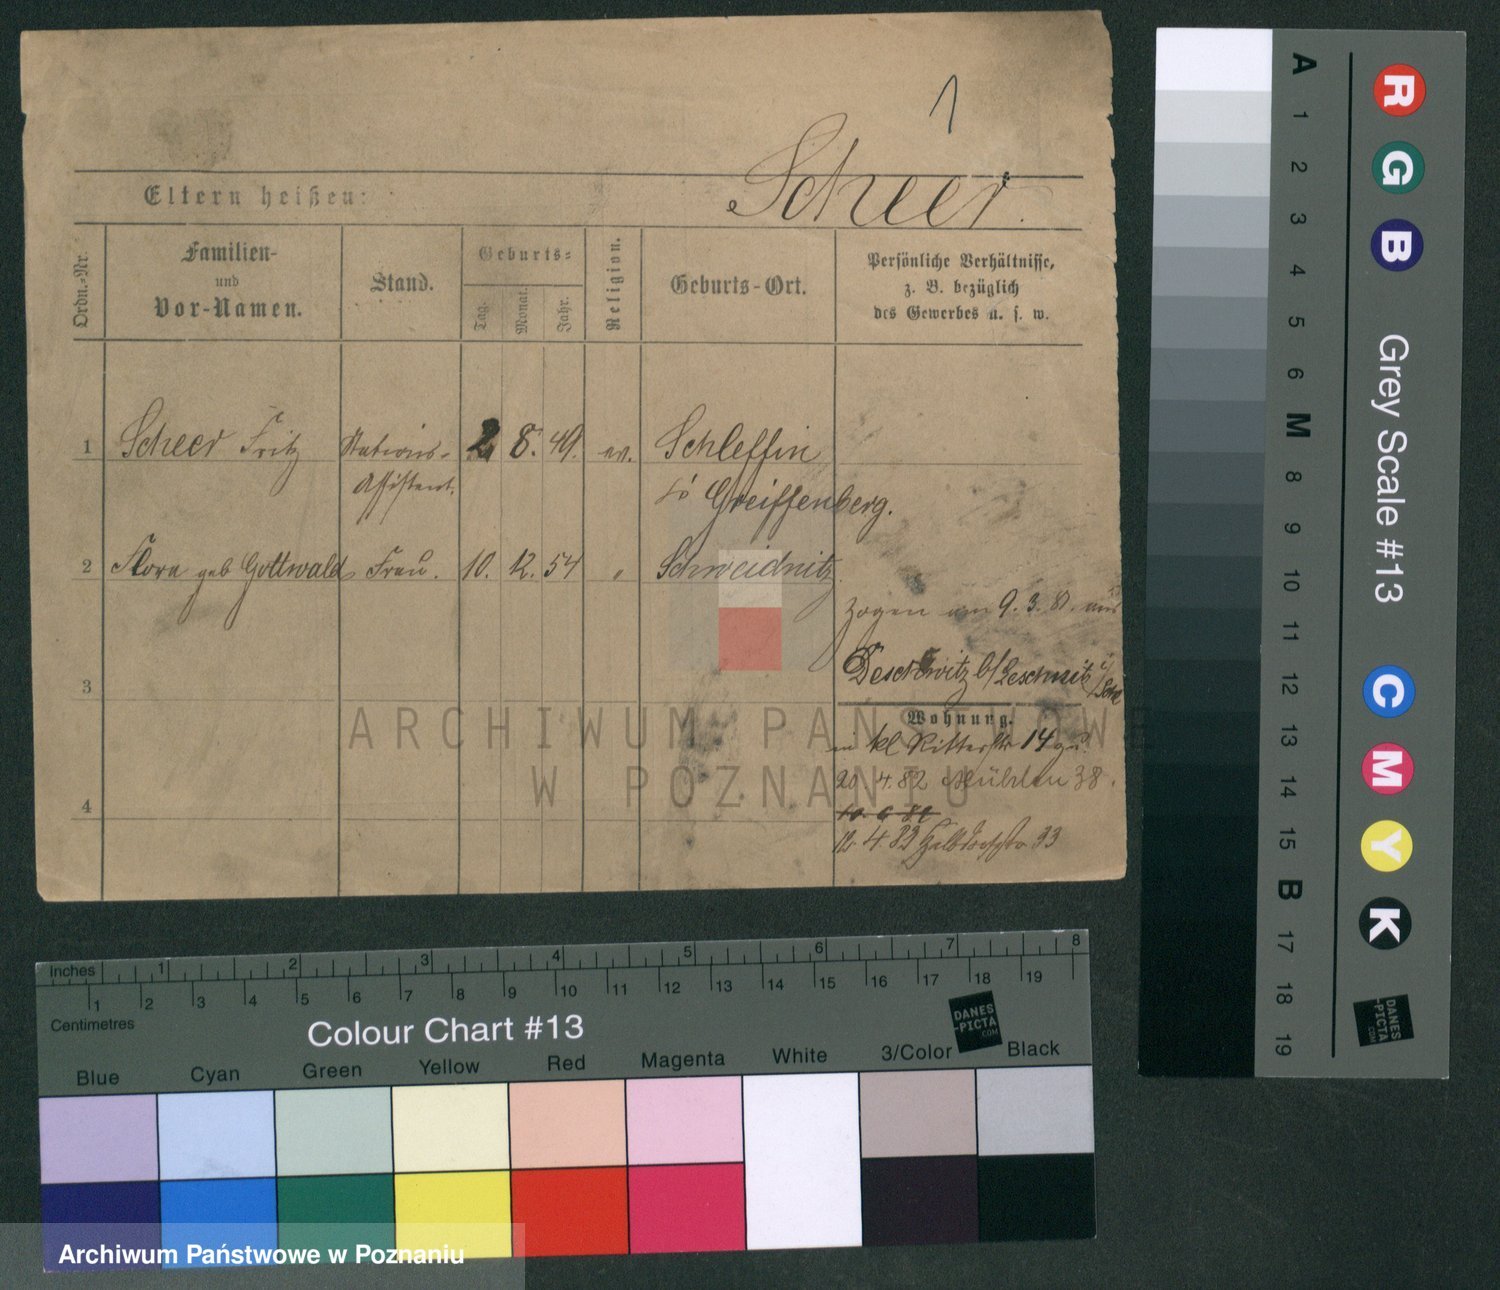 1
Scheer.
Eltern heißen:
Ordn.-Nr.
Familien-
und
Vor-Namen.
Stand.
Geburts-
Tag.
Monat.
Jahr.
Religion.
Geburts-Ort.
Persönliche Verhältnisse,
z. B. bezüglich
des Gewerbes u. s. w.
1 Scheer Fritz Stations- 2 8. 49. ev. Schleffin
Assistent. Greiffenberg.
2 Flora geb Gottwald Frau. 10. 12. 54 " Schweidnitz
zogen am 9. 3. 81. aus
Deschowitz b/Leschnitz
3
Wohnung.
kl Ritterstr 14
20. 4. 82 Mühlen 38.
4
12. 4. 83 33
ARCHIWUM PAŃSTWOWE
W POZNANIU
A 1 2 3 4 5 6 M 8 9 10 11 12 13 14 15 B 17 18 19
R G B
Grey Scale #13
C M Y K
DANES
-PICTA
.COM
Inches 1 2 3 4 5 6 7 8
1 2 3 4 5 6 7 8 9 10 11 12 13 14 15 16 17 18 19
Centimetres
Colour Chart #13
DANES
-PICTA
.COM
Blue Cyan Green Yellow Red Magenta White 3/Color Black
Archiwum Państwowe w Poznaniu